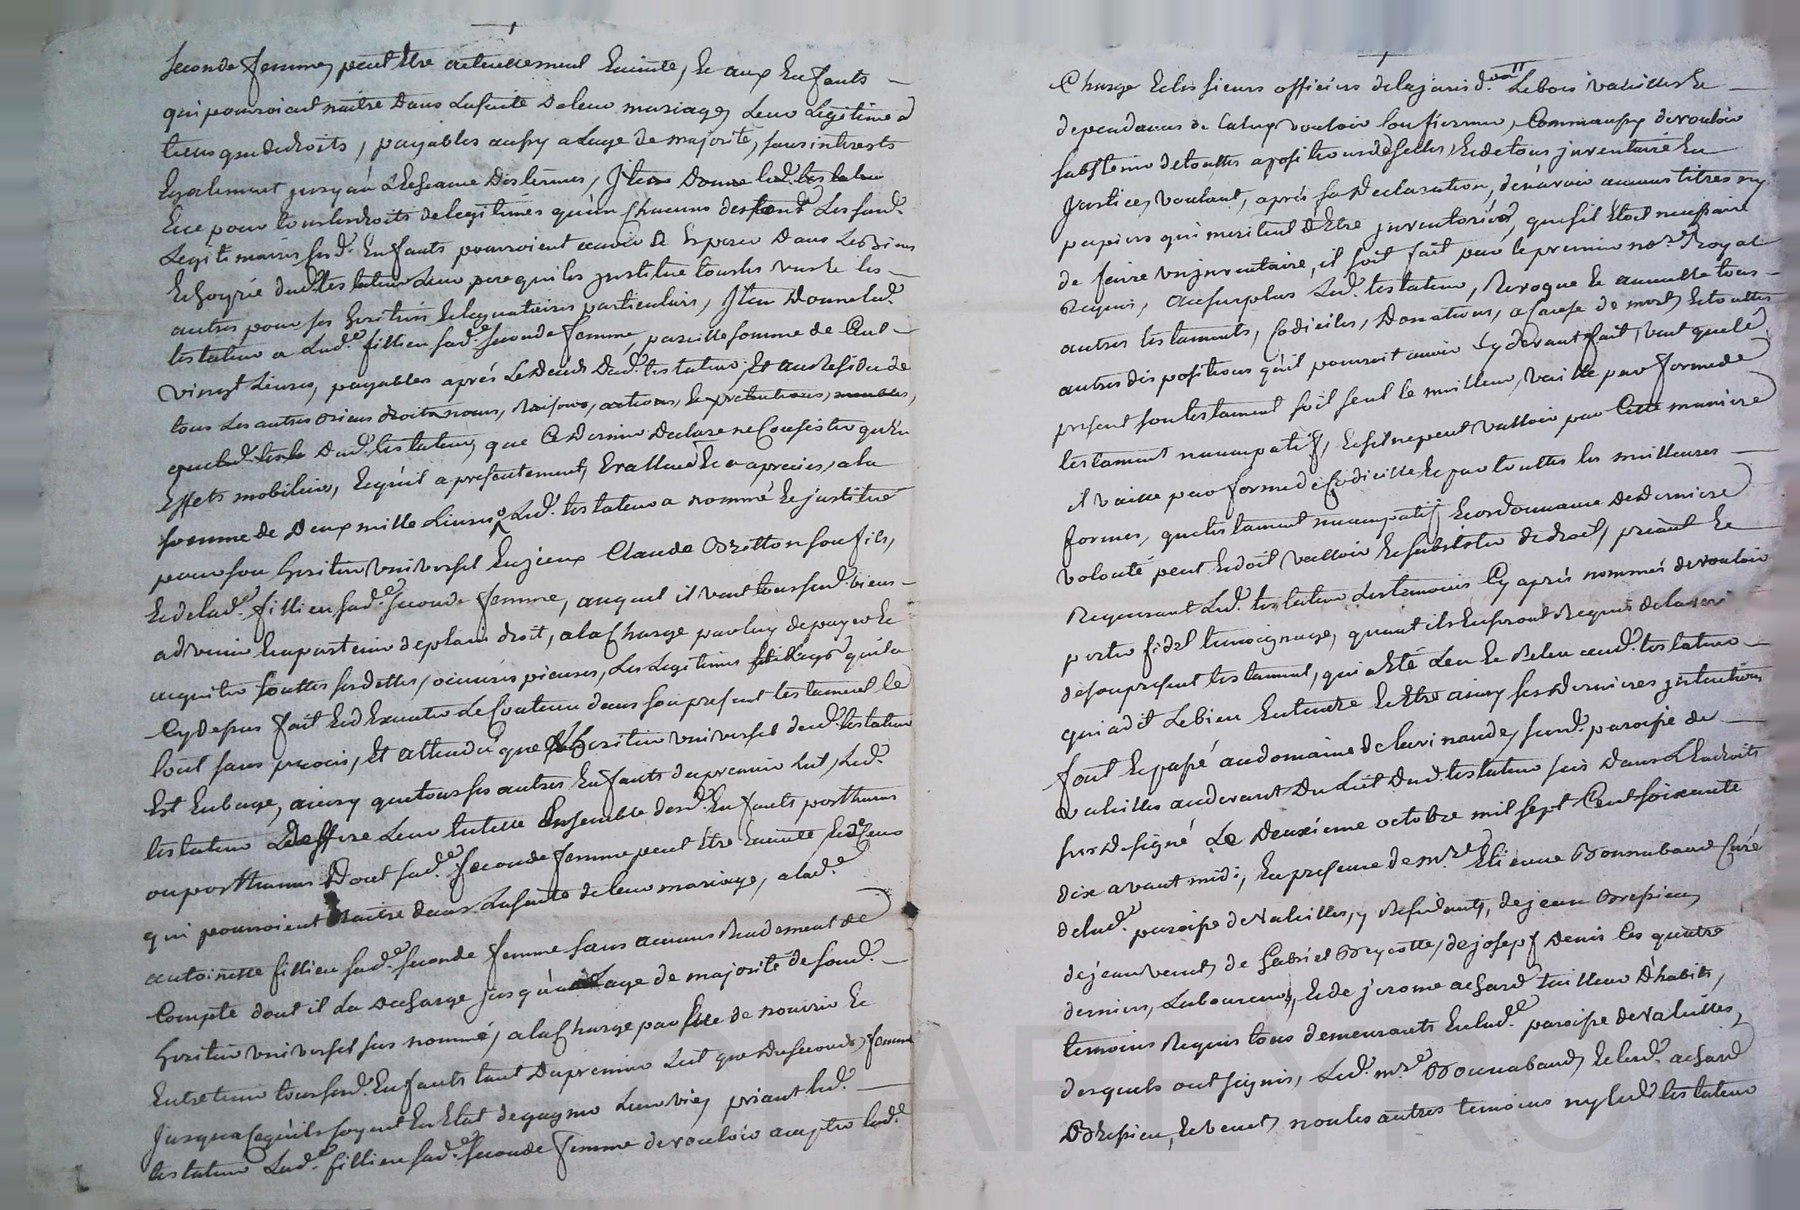 seconde femme, peut Etre actuellement Enceinte, Et aux Enfants
qui pourroient naitre Dans La suitte De leur mariage, Leur Legitime a
tiltre que de droits, payables aussy a L'age de majorité, sans interests
Egalement jusqu'au L'Echeance Des termes, Item Donne led.
pour tous les droits de legitimes qu'un Chacuns Les sus.
Legitimaires sesd. Enfants pourroient avoir Et Esperer Dans Les Biens
Et hoyrie dud. testateur Leur pere qui les justitue tous les uns Et les
autres pour ses heritiers Et legataires particuliers, Item Donne led.
testateur a Lad.e fillien sad.e seconde femme, pareille somme de Cent
vingt Livres, payables après Le Deceds Dud. testateur, Et au Residu de
tous Les autres Biens droits noms, Raisons, actions, Et pretentions, meubles,
Dud. testateur, que Ce Dernier Declare ne Consister qu'En
Effets mobiliers, Et qu'il a presentement, Evallué Et apreciés, a la
somme de Deux mille Livres, Led. testateur a nommé Et justitué
pour son heritier universel Claude Bretton son fils,
Et de lad.e fillien sad.e seconde femme, auquel il veut tous sesd. biens
advenir Et apartenir de plain droit, a la Charge par luy de payer Et
acquiter touttes ses dettes, oeuvres pieuses, Les Legitimes qu'il a
Cy dessus fait Et d'Executer Le Contenu dans son present testament Le
tout sans procès, Et attendu que heritier universel dud. testateur
Est En bas age, ainsy que tous ses autres Enfants du premier Lit, Led.
testateur Deffere Leur tutelle Ensemble desd. Enfants posthume
ou posthumes Dont sad.e seconde femme peut Etre Enceinte Et de Ceux
qui pourroient Naitre dans La suitte de leur mariage, a lad.e
antoinette fillien sad.e seconde femme sans aucuns Rendement de
Compte dont il La Decharge jusqu'a L'age de majorité de sond.
heritier universel sus nommé, a la Charge par Elle de nourrir Et
Entretenir tous sesd. Enfants tant Du premier Lit que Du second, femme
jusqua Ce qu'ils soyent En Etat de gagner Leur vie, priant led.
testateur Lad.e fillien sad.e seconde femme de vouloir accepter lad.e
Charge Et les sieurs officiers de la jurisd.on Lebois valeilles Et
dependances de Celuy vouloir Confirmer, Comme aussy de vouloir
s'abstenir de touttes apositions de scelles, Et de tous jnventaire En
justice, voulant, après sa Declaration, de n'avoir aucuns titres ny
papiers qui meritent d'Etre jnventoriés, que s'il Etoit necessaire
de faire un jnventaire, il soit fait par le premier no.re Royal
Requis, au surplus Led. testateur, Revoque Et annulle tous
autres testaments, Codiciles, Donations, a Cause de mort, Et touttes
autres dispositions qu'il pourroit avoir Cy devant fait, veut que le
present son testament soit seul le meilleur, vaille par forme de
testament nuncupatif, Et s'il ne peut valloir par Cette maniere
il vaille par forme de Codicille Et par touttes les meilleures
formes, que testament nuncupatif, Et ordonnance de Derniere
volonté peut Et doit valloir Et subsister de droit, priant Et
Requerant Led. testateur Les temoins Cy après nommés de vouloir
porter fidel temoignage, quant ils En seront Requis de la
de son present testament, qui a Eté Leu Et Releu aud. testateur
qui a dit Le bien Entendre Et Etre ainsy ses Dernieres jntentions
fait Et passé au domaine de , sur.d paroisse de
valeilles au devant Du Lit Dud. testateur scis Dans L'Endroits
sus Designé Le Deuxieme octobre mil sept Cent soixante
dix avant midi, En presence de m.re Etienne Bonnabaud Curé
de lad.e paroisse de Valeilles, y Residant, de jean Bression,
de jean venet, de Gabriel , de joseph Denis Les quatre
derniers, Laboureurs, Et de jerome achard tailleur D'habits,
temoins Requis tous demeurants En lad.e paroisse de Valeilles,
desquels ont signés, Led. m.re Bonnabaud, Et led. achard
Bression, Et venet, non les autres temoins ny led. testateur